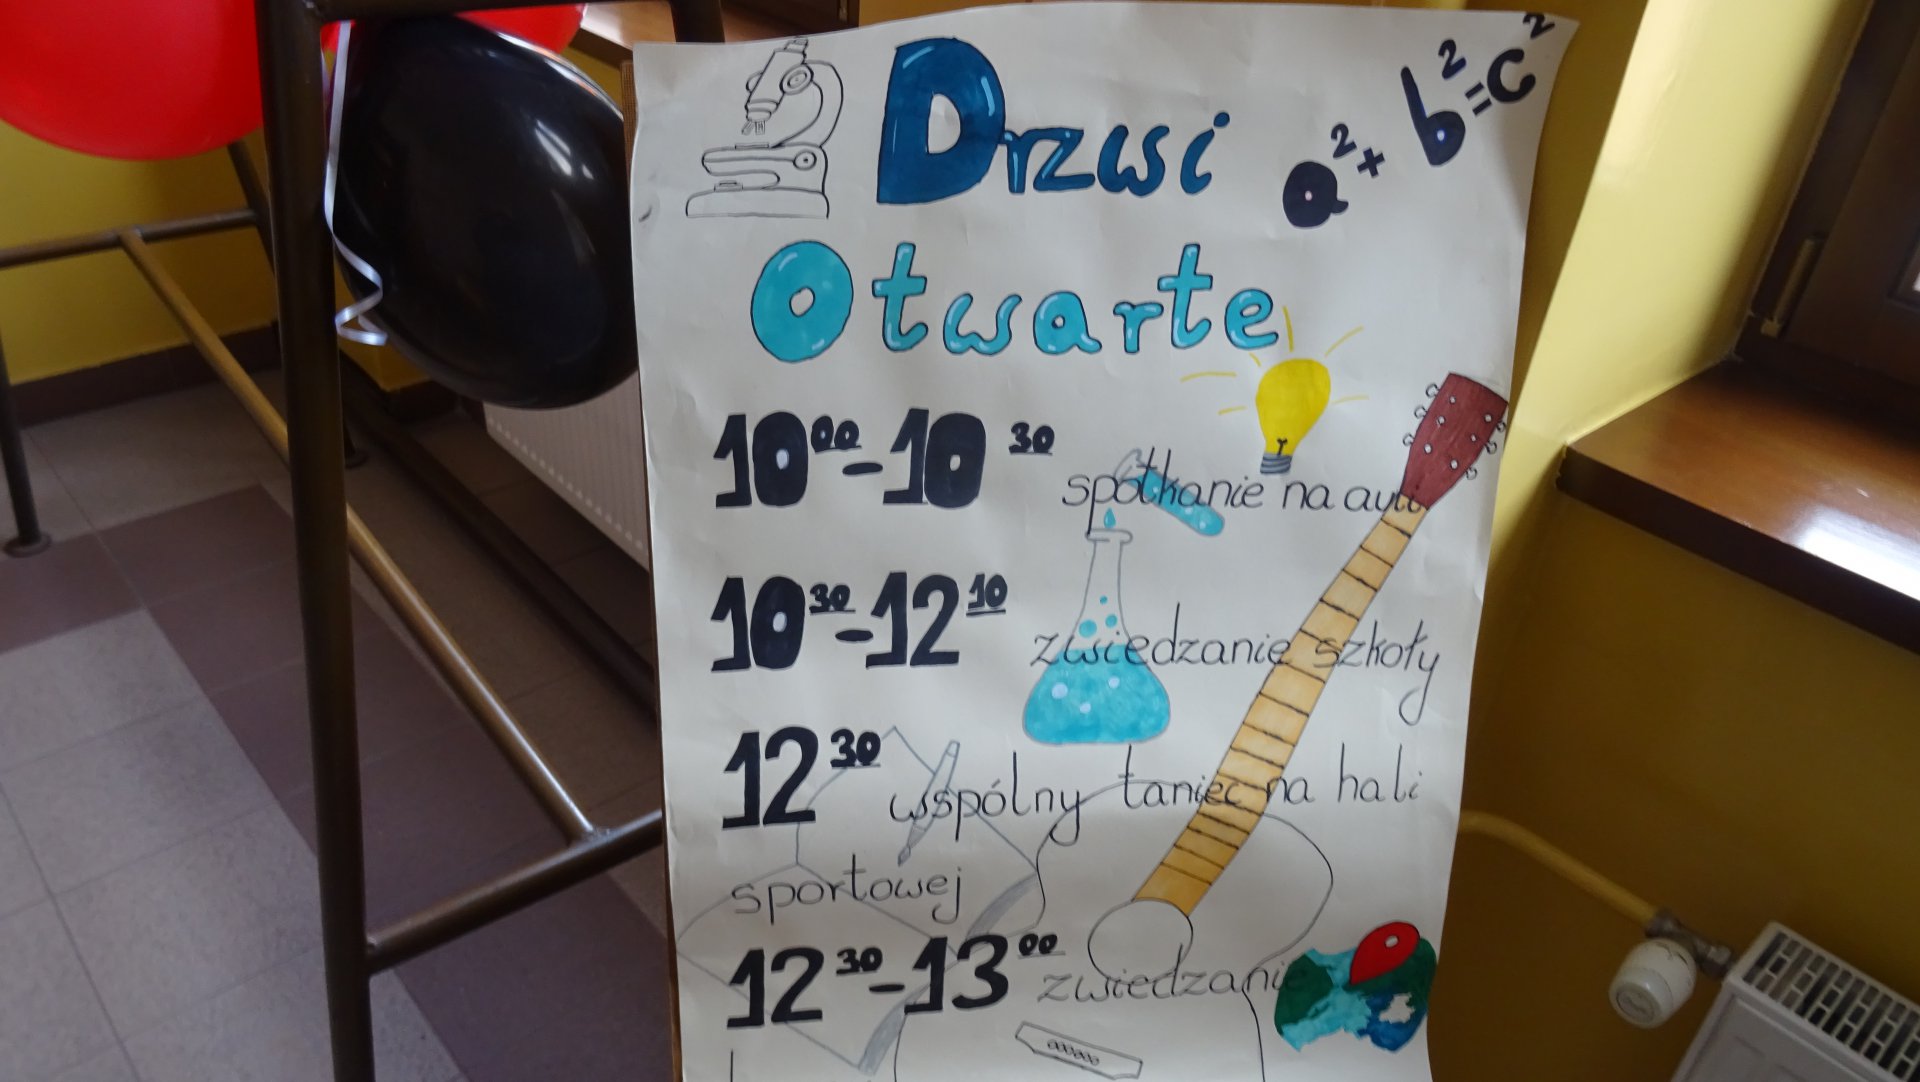 Drzwi
a²+b²=c²
Otwarte
10⁰⁰-10³⁰ spotkanie na auli
10³⁰-12¹⁰ zwiedzanie szkoły
12³⁰ wspólny taniec na hali
sportowej
12³⁰-13⁰⁰ zwiedzanie